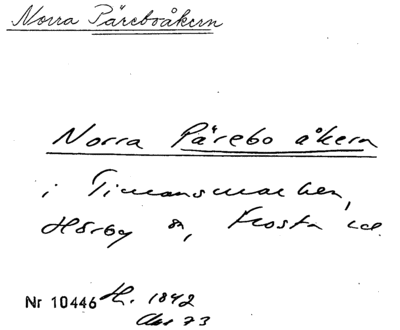 Norra Päreboåkern
Norra Pärebo åkern
i Timansmarken,
Hörby sn, Frosta hd.
Nr 10446 H. 1842
73